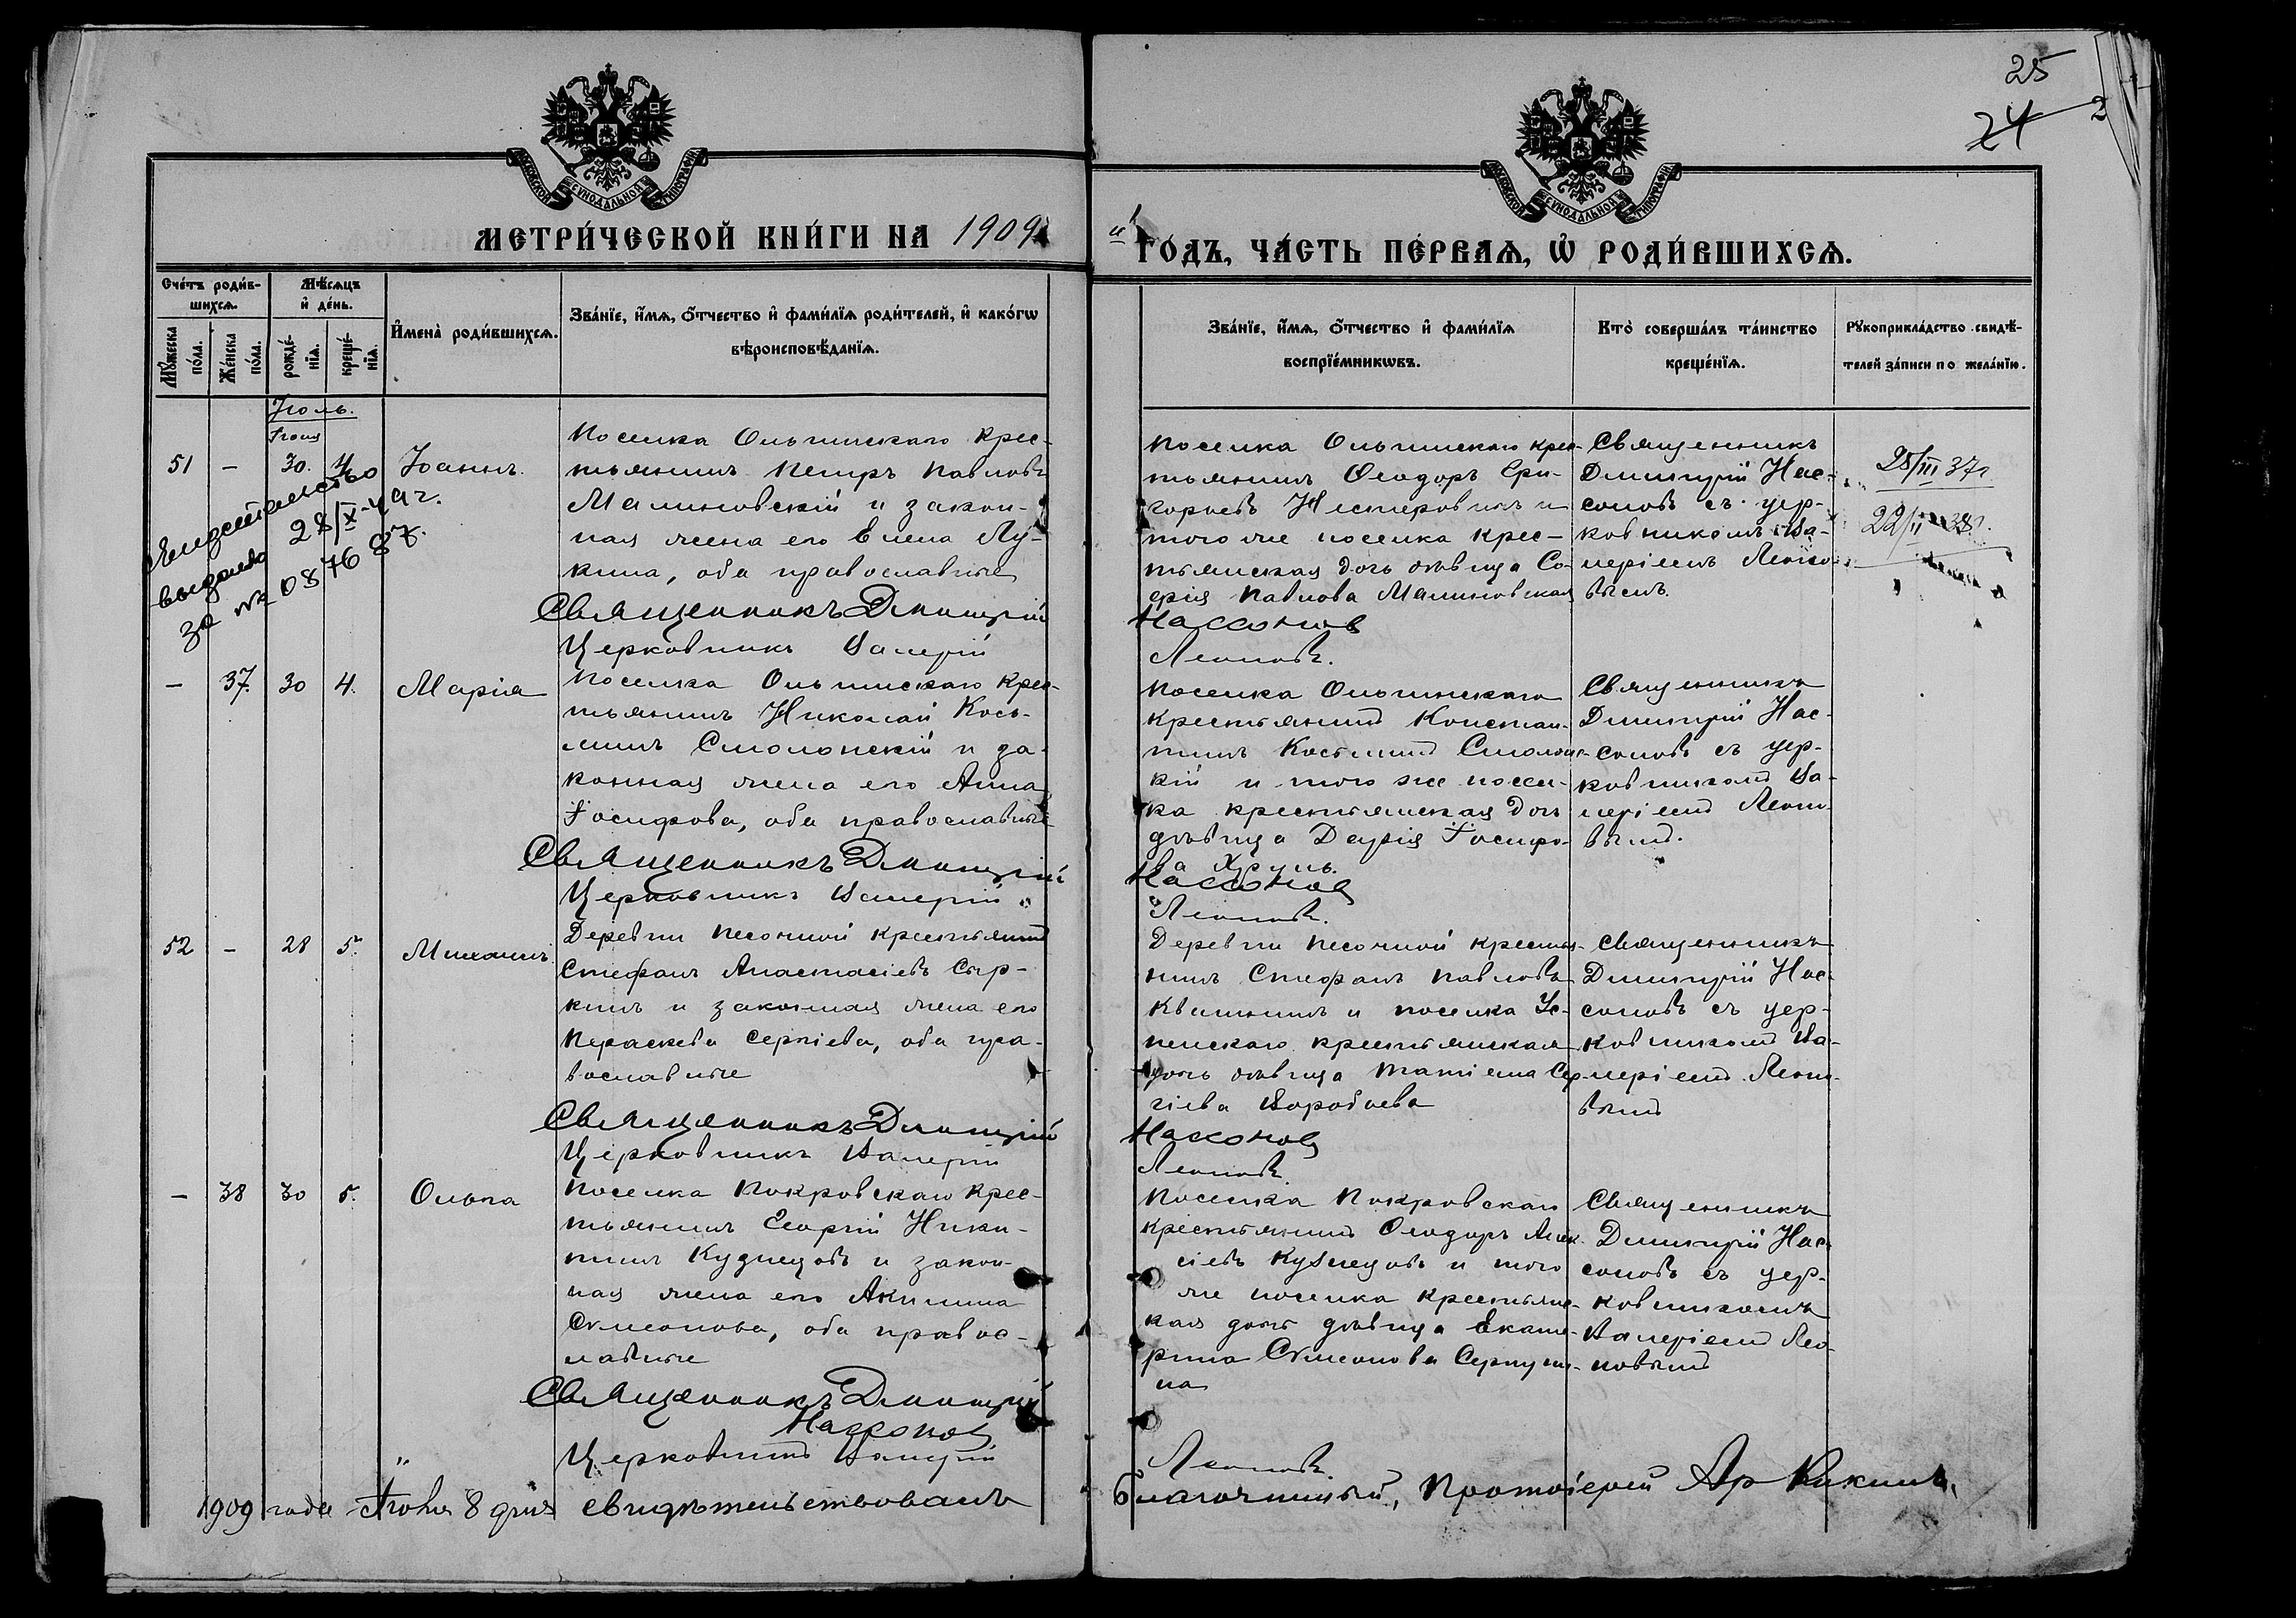 25
24
2
МОСКОВСКОЙ СѴНОДАЛЬНОЙ ТИПОГРАФІИ
МОСКОВСКОЙ СѴНОДАЛЬНОЙ ТИПОГРАФІИ
МЕТРИ́ЧЕСКОЙ КНИ́ГИ НА 1909
й ГО́ДЪ, ЧА́СТЬ ПЕ́РВАѦ, Ѡ҆ РОДИ́ВШИХСѦ.
Сче́тъ роди́в-
шихсѧ.
Мꙋ́жеска по́ла.
Же́нска по́ла.
Мѣ́сѧцъ
и҆ де́нь.
рожде́-
нїѧ.
креще́-
нїѧ.
И҆мена̀ роди́вшихсѧ.
Зва́нїе, и҆́мѧ, ѻ҆́тчество и҆ фами́лїѧ роди́телей, и҆ како́гѡ
вѣроисповѣ́данїѧ.
Зва́нїе, и҆́мѧ, ѻ҆́тчество и҆ фами́лїѧ
воспрїе́мникѡвъ.
Кто̀ соверша́лъ та́инство
креще́нїѧ.
Рꙋкоприкла́дство свидѣ́-
телей за́писи по жела́нїю.
Іюль.
Іюня
51 – 30. Іоаннъ.
Поселка Ольгинскаго крес-
тьянинъ Петръ Павловъ
Малиновскій и закон-
ная жена его Елена Лу-
кина, оба православные
Священникъ Димитрій
Церковникъ Валерій
Свидетельство
выдано 28/X-49г.
за № 087687.
Поселка Ольгинскаго крес-
тьянинъ Ѳеодоръ Гри-
горьевъ Нестеровичъ и
того же поселка крес-
тьянская дочь дѣвица Со-
фія Павлова Малиновская
Нассонов
Леоновъ.
Священникъ
Димитрій Нас-
соновъ съ цер-
ковникомъ Ва-
леріемъ Леоно-
вымъ.
28/III 37г
22/II 38г.
– 37. 30 4. Марія
Поселка Ольгинскаго крес-
тьянинъ Николай Кось-
минъ Смолонскій и за-
конная жена его Анна
Іосифова, оба православные
Священникъ Димитрій
Церковникъ Валерій
Поселка Ольгинскаго
крестьянинъ Констан-
тинъ Косьминъ Смолонс-
кій и того же посел-
ка крестьянская дочь
дѣвица Дарія Іосифо-
ва
Нассонов
Леоновъ.
Священникъ
Димитрій Нас-
соновъ съ цер-
ковникомъ Ва-
леріемъ Леоно-
вымъ.
52 – 28 5. Михаилъ
Деревни Песочной крестьянинъ
Стефанъ Анастасіевъ Сыр-
кинъ и законная жена его
Параскева Сергіева, оба пра-
вославные
Священникъ Димитрій
Церковникъ Валерій
Деревни Песочной крестья-
нинъ Стефанъ Павловъ
Квашнинъ и поселка Ус-
пенскаго крестьянская
дочь дѣвица Татіана Сер-
гіева Воробьева
Нассонов
Леоновъ.
Священникъ
Димитрій Нас-
соновъ съ цер-
ковникомъ Ва-
леріемъ Леоно-
вымъ
– 38 30 5. Ольга
Поселка Покровскаго крес-
тьянинъ Георгій Ники-
тинъ Кузнецовъ и закон-
ная жена его Акилина
Симеонова, оба правос-
лавные
Священникъ Димитрій
Нассонов
Церковникъ Валерій
Поселка Покровскаго
крестьянинъ Ѳеодоръ Алек-
сіевъ Кузнецовъ и того
же поселка крестьянс-
кая дочь дѣвица Екате-
рина Симеонова
на
Леоновъ.
Священникъ
Димитрій Нас-
соновъ съ цер-
ковникомъ
Валеріемъ Лео-
новымъ
1909 года 8 дня свидѣтельствовалъ
благочинный, Протоіерей